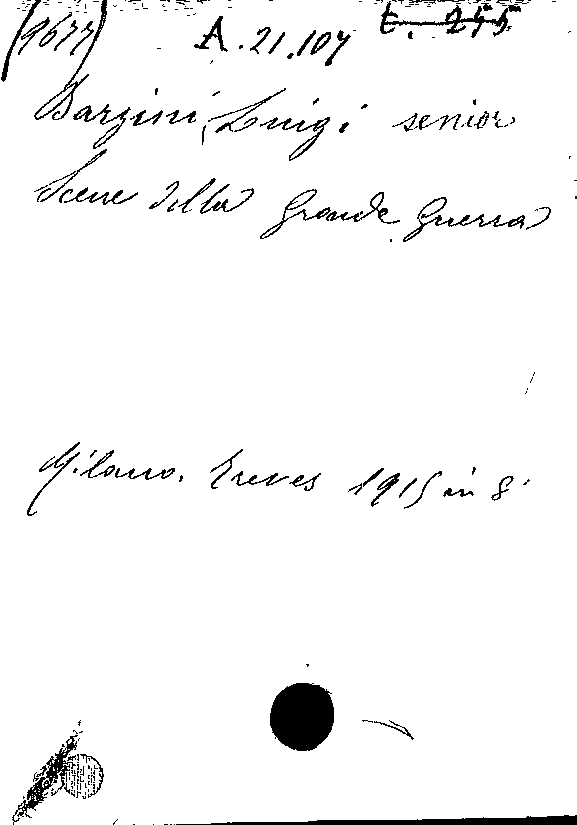 (9677) A.21.107 t. 255
Barzini, Luigi senior
Scene della Grande Guerra
Milano. Treves 1915 in 8°